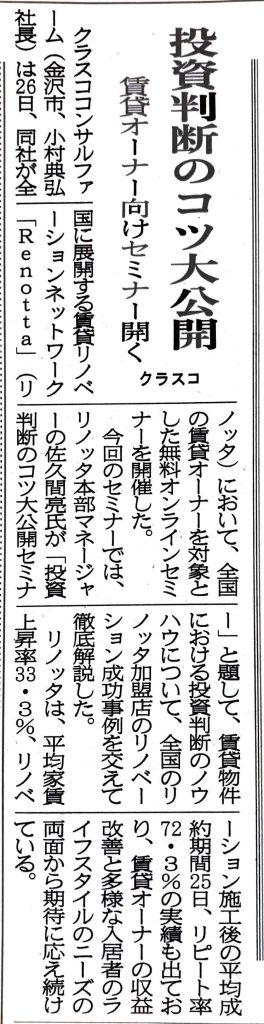 投資判断のコツ大公開
賃貸オーナー向けセミナー開く
クラスコ
クラスココンサルファ
ーム（金沢市、小村典弘
社長）は26日、同社が全
国に展開する賃貸リノベ
ーションネットワーク
「Renotta」（リ
ノッタ）において、全国
の賃貸オーナーを対象と
した無料オンラインセミ
ナーを開催した。
　今回のセミナーでは、
リノッタ本部マネージャ
ーの佐久間亮氏が「投資
判断のコツ大公開セミナ
ー」と題して、賃貸物件
における投資判断のノウ
ハウについて、全国のリ
ノッタ加盟店のリノベー
ション成功事例を交えて
徹底解説した。
　リノッタは、平均家賃
上昇率33・3％、リノベ
ーション施工後の平均成
約期間25日、リピート率
72・3％の実績も出てお
り、賃貸オーナーの収益
改善と多様な入居者のラ
イフスタイルのニーズの
両面から期待に応え続け
ている。